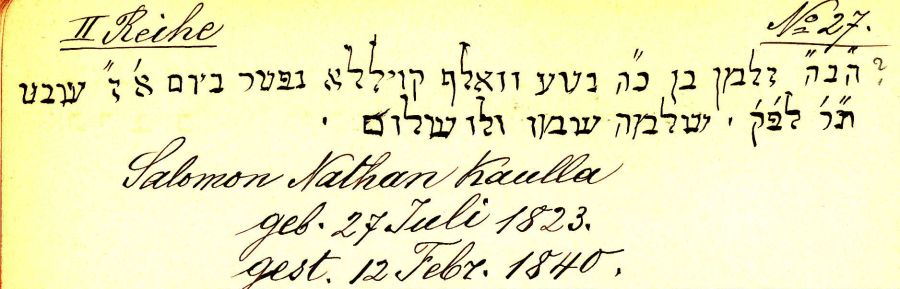 II Reihe
No 27.
הבה״ זלמן בן כ״ה נטע וואלף קויללא נפטר ביום א׳ ז״ שבט ?
ת״ר לפ״ק . שלמה שמו ולו שלום .
Salomon Nathan Kaulla
geb. 27 Juli 1823.
gest. 12 Febr. 1840.